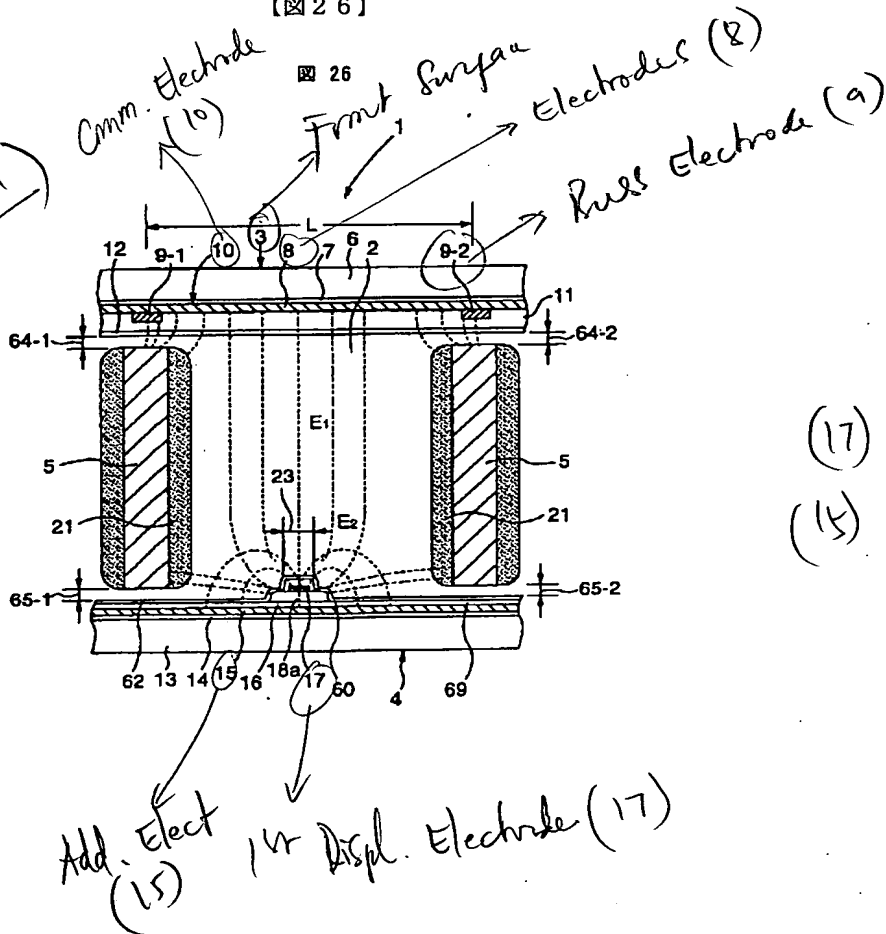 【図26】
図 26
Comm. Electrode
(10)
Front Surface
Electrodes (8)
Buss Electrode (9)
1
L
12 9-1 10 3 8 6 7 2 9-2
11
64-1 64-2
E1
5 5
23
E2
21 21
(17)
(15)
65-1 65-2
62 13 14 15 16 18a 17 60 4 69
Add. Elect
(15)
1st Displ. Electrode (17)